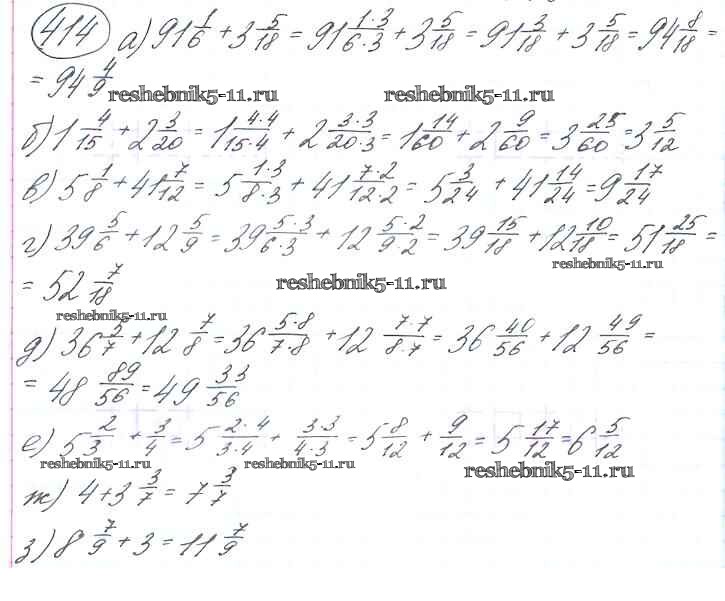 414 а) 91 1/6 + 3 5/18 = 91 1·3/6·3 + 3 5/18 = 91 3/18 + 3 5/18 = 94 8/18 =
= 94 4/9
reshebnik5-11.ru reshebnik5-11.ru
б) 1 4/15 + 2 3/20 = 1 4·4/15·4 + 2 3·3/20·3 = 1 14/60 + 2 9/60 = 3 25/60 = 3 5/12
в) 5 1/8 + 41 7/12 = 5 1·3/8·3 + 41 7·2/12·2 = 5 3/24 + 41 14/24 = 9 17/24
г) 39 5/6 + 12 5/9 = 39 5·3/6·3 + 12 5·2/9·2 = 39 15/18 + 12 10/18 = 51 25/18 =
reshebnik5-11.ru
= 52 7/18
reshebnik5-11.ru
reshebnik5-11.ru
д) 36 5/7 + 12 7/8 = 36 5·8/7·8 + 12 7·7/8·7 = 36 40/56 + 12 49/56 =
= 48 89/56 = 49 33/56
е) 5 2/3 + 3/4 = 5 2·4/3·4 + 3·3/4·3 = 5 8/12 + 9/12 = 5 17/12 = 6 5/12
reshebnik5-11.ru reshebnik5-11.ru reshebnik5-11.ru
ж) 4 + 3 3/7 = 7 3/7
з) 8 7/9 + 3 = 11 7/9